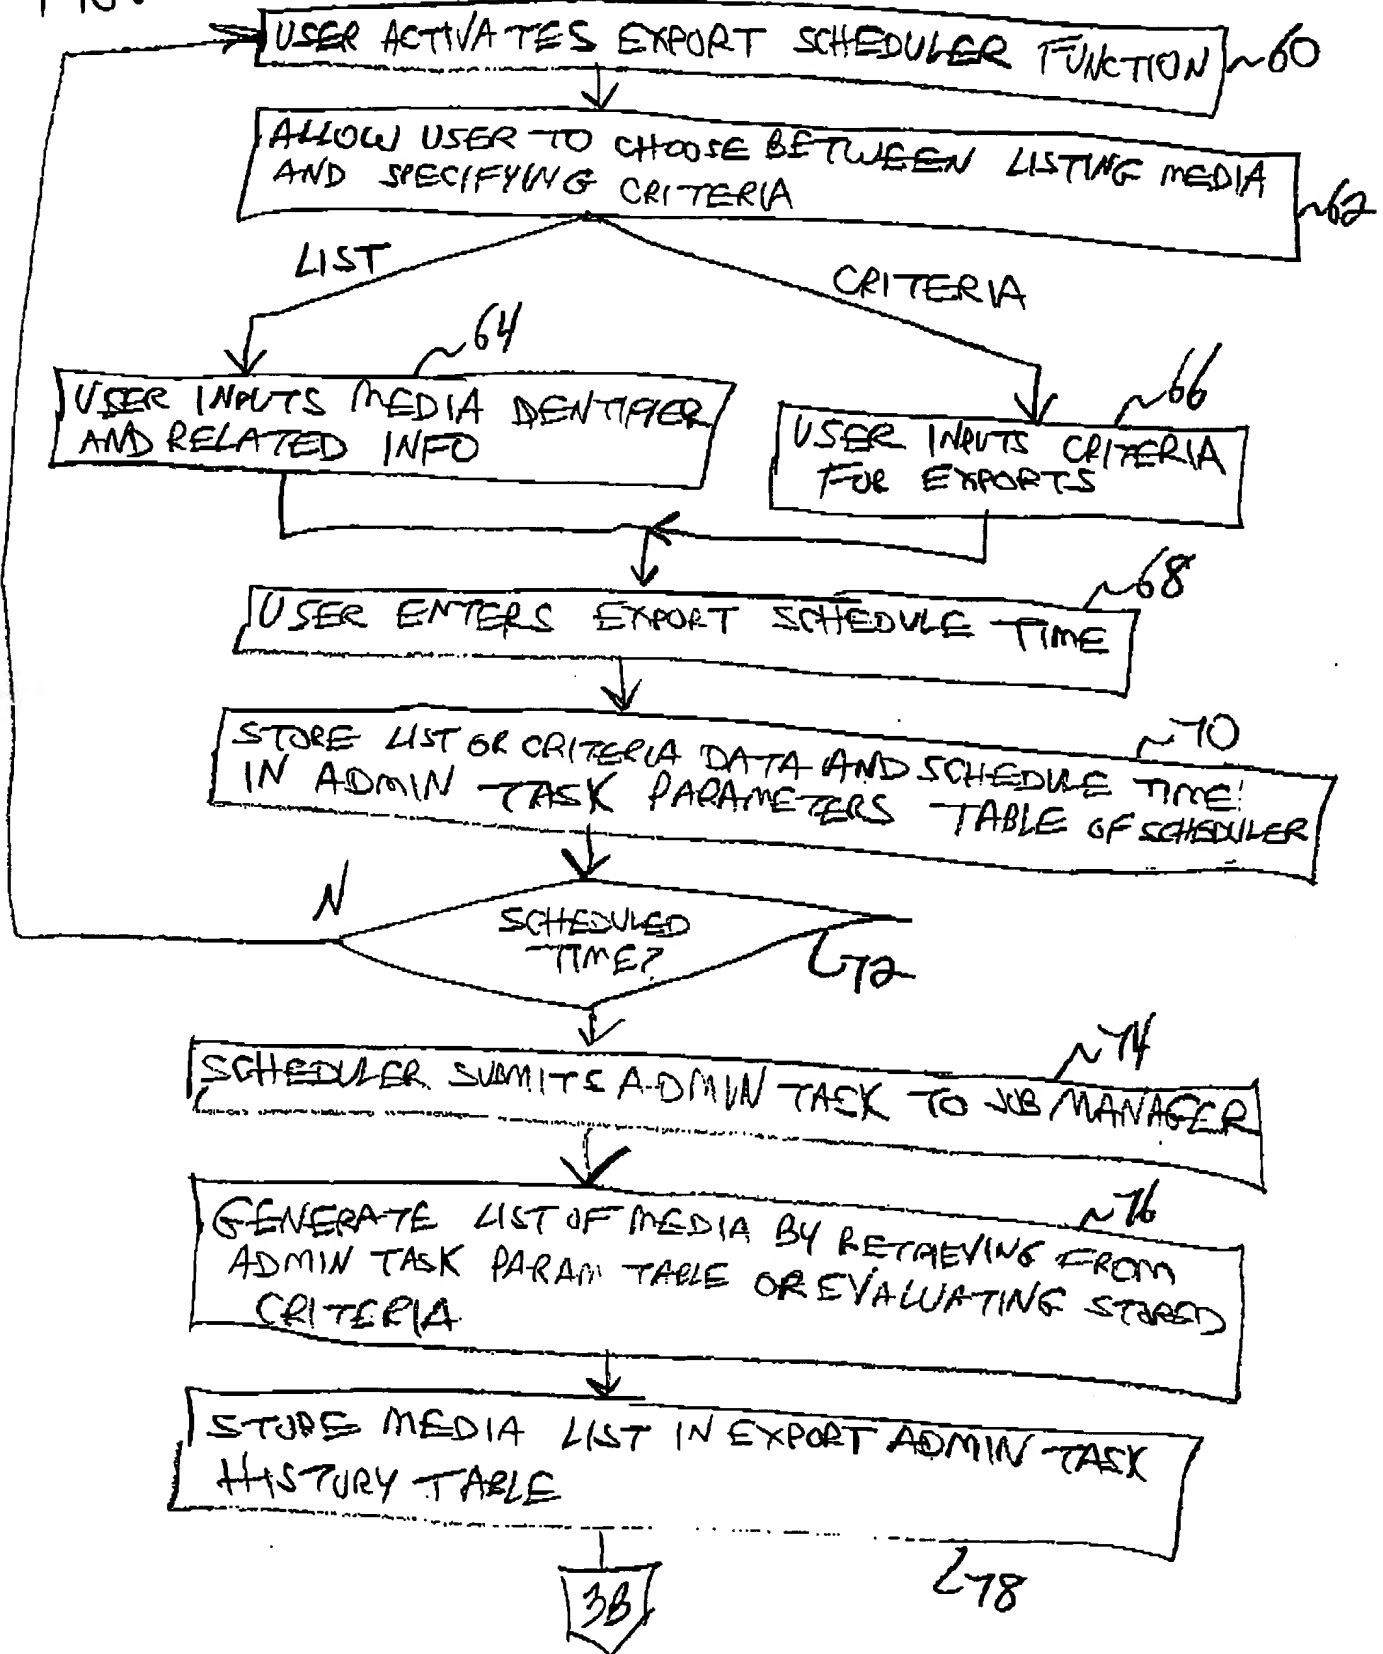 FIG.
USER ACTIVATES EXPORT SCHEDULER FUNCTION
60
ALLOW USER TO CHOOSE BETWEEN LISTING MEDIA
AND SPECIFYING CRITERIA
62
LIST
CRITERIA
64
USER INPUTS MEDIA IDENTIFIER
AND RELATED INFO
66
USER INPUTS CRITERIA
FOR EXPORTS
68
USER ENTERS EXPORT SCHEDULE TIME
70
STORE LIST OR CRITERIA DATA AND SCHEDULE TIME
IN ADMIN TASK PARAMETERS TABLE OF SCHEDULER
N
SCHEDULED
TIME?
72
74
SCHEDULER SUBMITS ADMIN TASK TO JOB MANAGER
76
GENERATE LIST OF MEDIA BY RETRIEVING FROM
ADMIN TASK PARAM TABLE OR EVALUATING STORED
CRITERIA
STORE MEDIA LIST IN EXPORT ADMIN TASK
HISTORY TABLE
78
3B